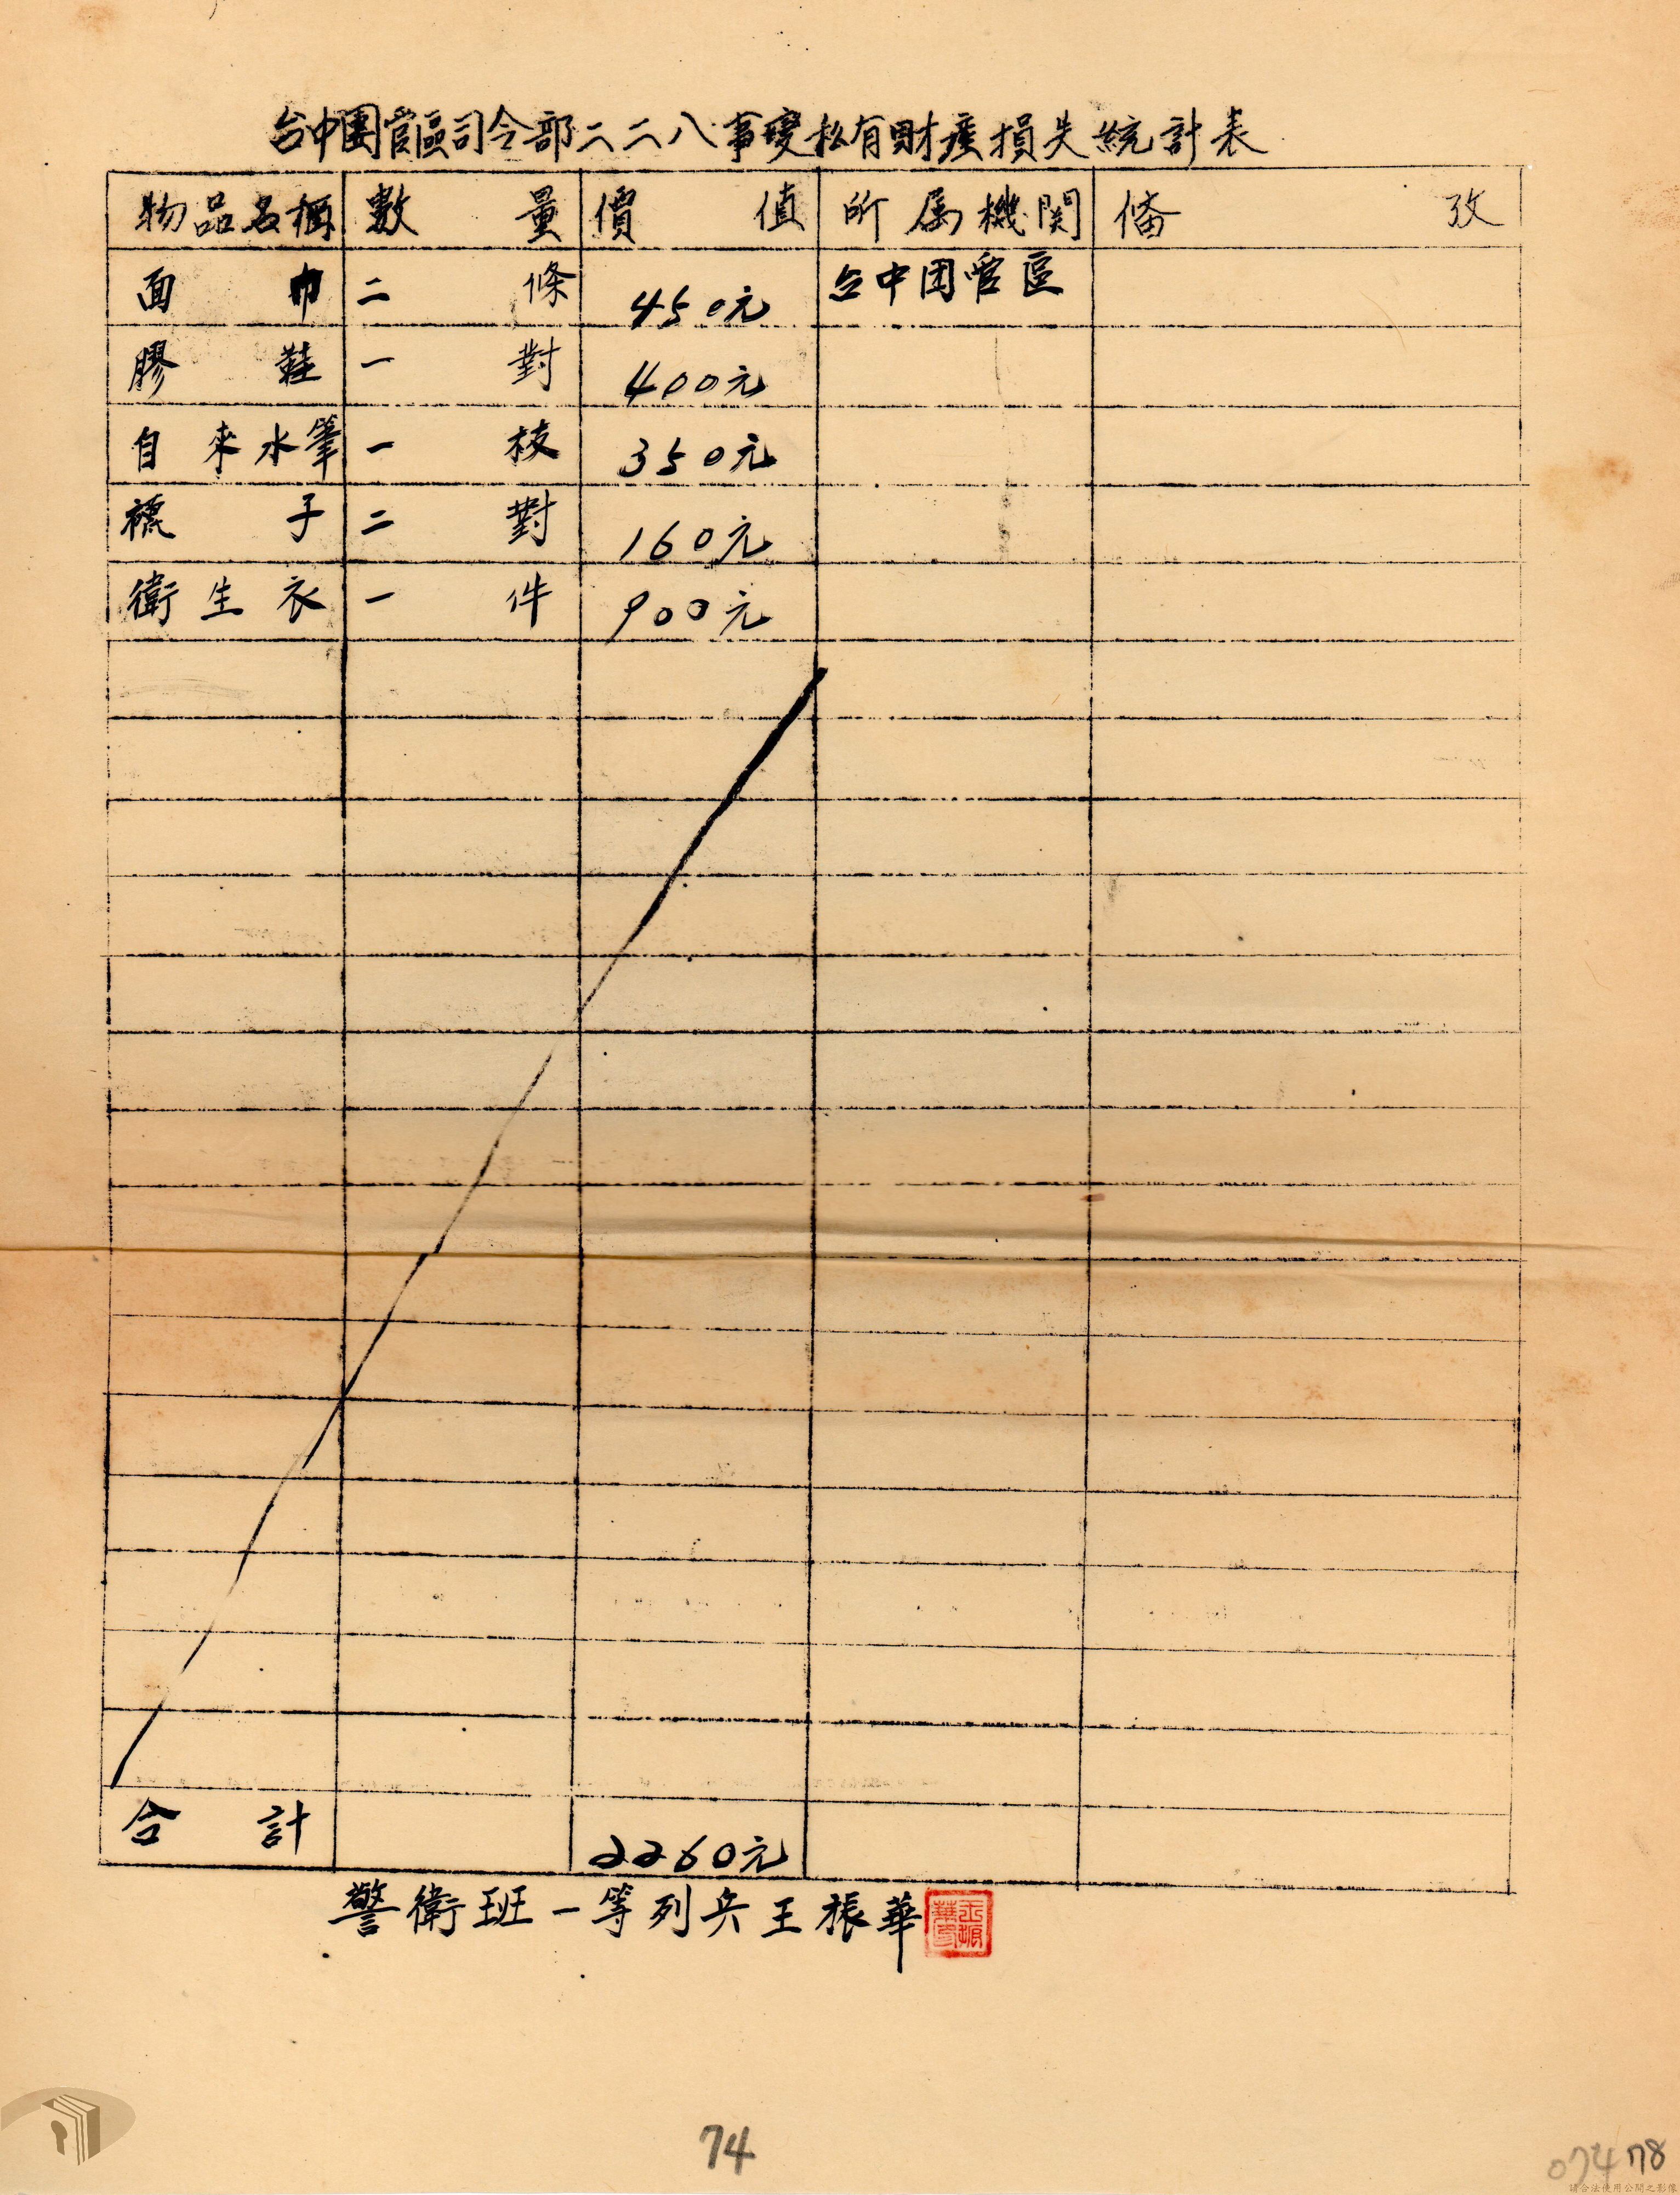 台中團管區司令部二二八事變私有財產損失統計表
物品名稱 數量 價值 所属機関 俻攷
面巾 二條 450元 台中团管區
膠鞋 一對 400元
自來水筆 一枝 350元
襪子 二對 160元
衛生衣 一件 900元
合計 2260元
警衛班一等列兵王振華
74
074 78
請合法使用公開之影像